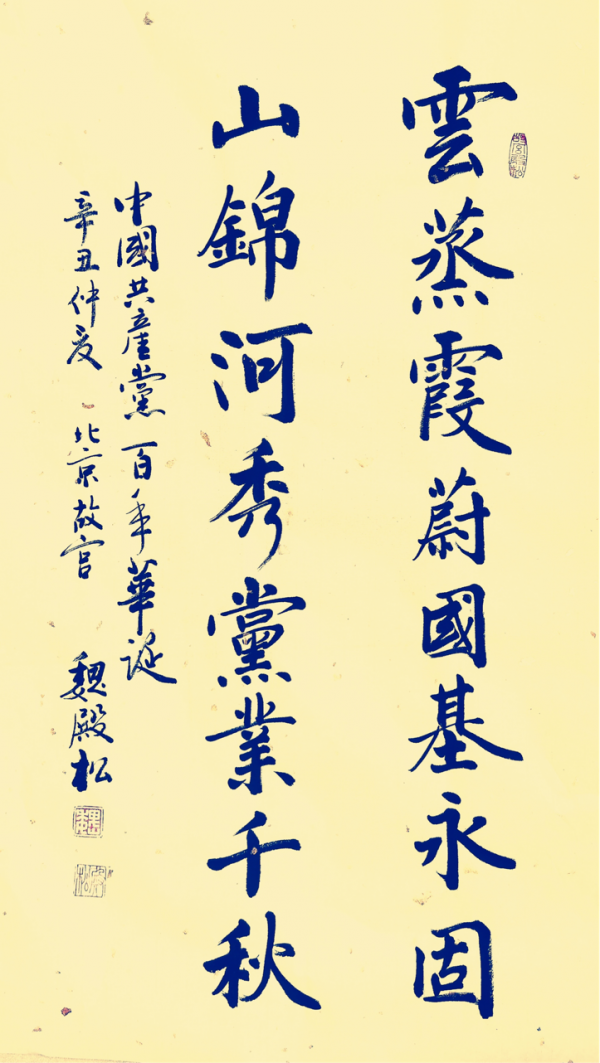 雲蒸霞蔚國基永固
山錦河秀黨業千秋
中國共產黨百年華誕
辛丑仲夏 北京故宮 魏殿松